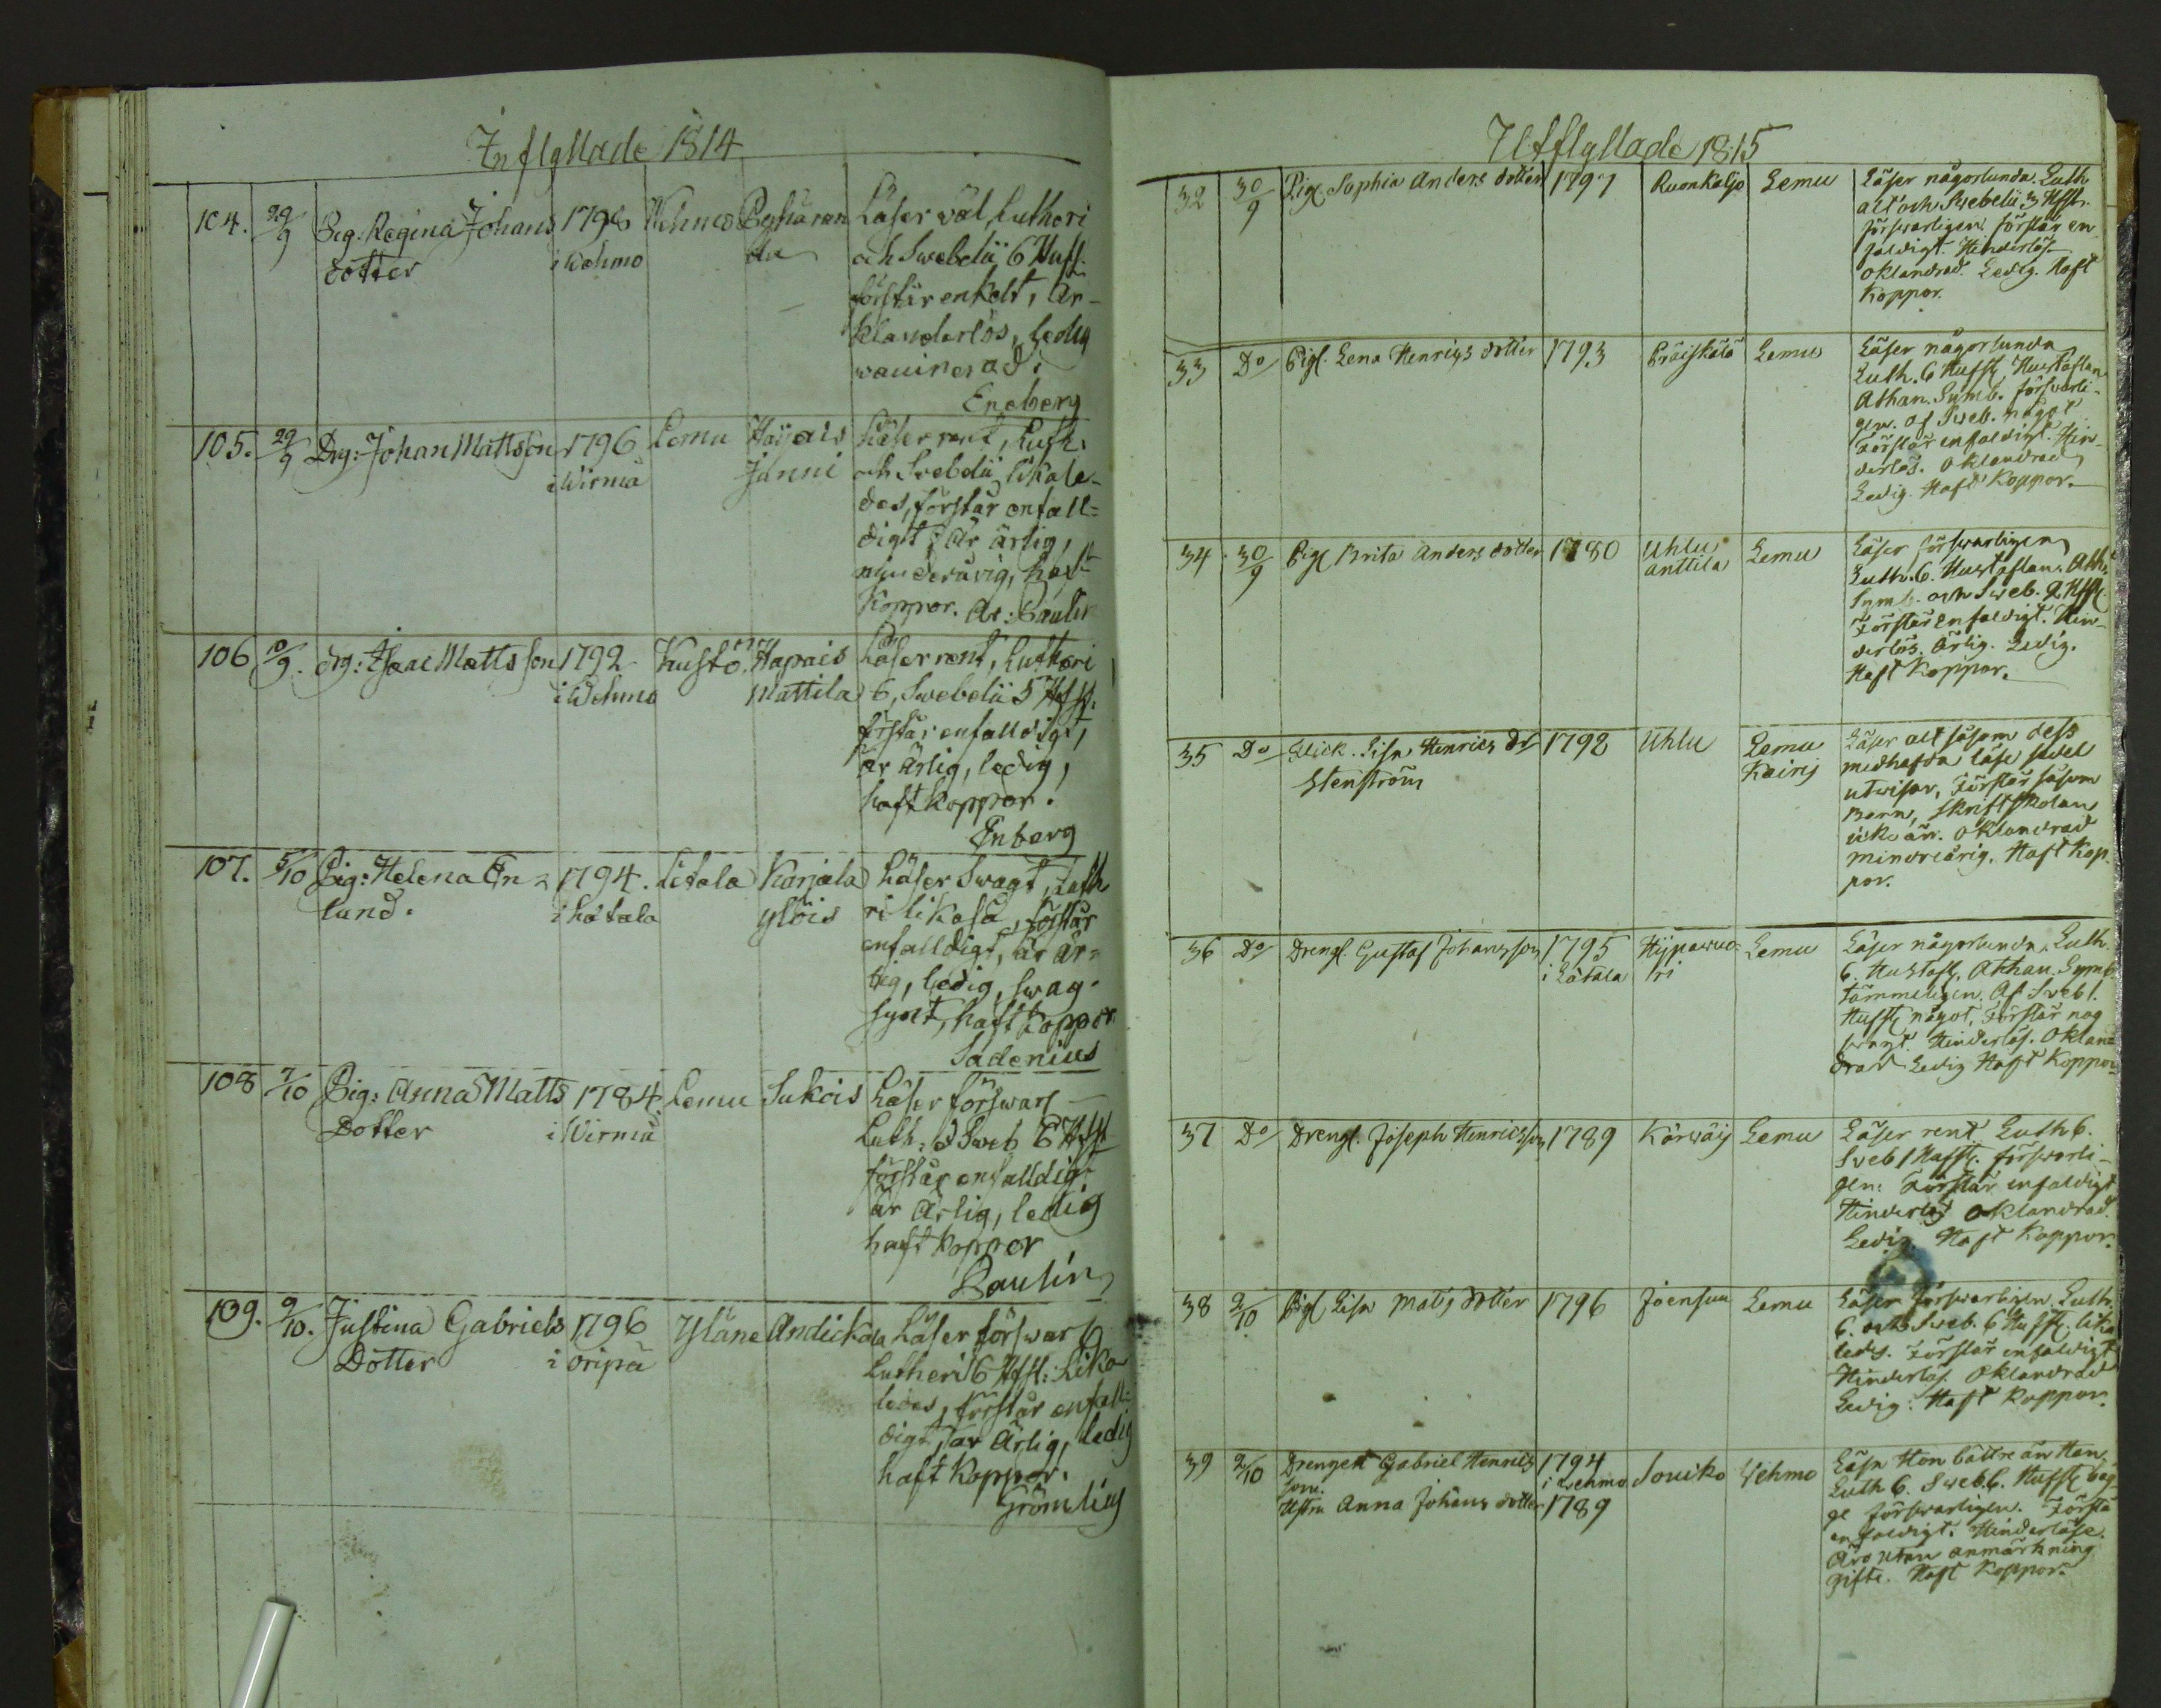 Inflyttade 1814
104. 29/9 Pig. Regina Johans 1796 Wehmo
dotter i Wehmo
Läser wäl, Lutheri
och Swebelii 6 Huf.
förstår enkelt, är
klanderlös, ledig
waccinerad.
Eneberg
105. 29/9 Drg: Johan Mattsson 1796 Lemu
i Wirmå Janni
Läser rent, Luth.
och Svebelii likale-
des, förstår enfall-
digt, är ärlig,
haft
Koppor. Ar: Paulin
106 10/9. drg: Isaac Mattsson 1792 Kustö Hapais
i Wehmo Mattila
Läser rent, Lutheri
6, Swebelii 5 Hfst.
förstår enfalldigt,
är ärlig, ledig,
haft koppor.
Enberg
107. 5/10 Pig: Helena En- 1794. Letala Karjala
lund. i Letala ylöis
Läser Swagt, Luth
ri likaså, förstår
enfalldigt, är är-
lig, ledig, swag-
synt, haft koppor.
Sadenius
108 7/10 Pig: Anna Matts 1784. Lemu Sukois
Dotter i Wirmå
Läser förswarl
Luth: & Sweb 6 Hfst
förstår enfalldigt
är Ärlig, ledig
haft koppor
Paulin
109. 9/10. Justina Gabriels 1796 Yläne Andickala
Dotter i Oripä
Läser förswarl
Lutheri 6 Hfst: Lika
ledes, förstår enfall-
digt, är Ärlig, ledig
haft Koppor.
Grömlius
Utflyttade 1815
32 30/9 Pig. Sophia Anders dotter 1797 Ruonkaljo Lemu
Läser någorlunda. Luth
alt och Svebelii 3 Hfst.
försvarligen. förstår en
faldigt. Hinderlös.
oklandrad. Ledig. Haft
Koppor.
33 Do Pigl. Lena Henrics dotter 1793 Präiskälä Lemu
Läser någorlunda
Luth. 6 Hufst. Hustaflan
Athan. Symb. försvarli-
gen. af Sveb. något
Förstår enfaldigt. Hin-
derlös. Oklandrad
Ledig. Haft Koppor.
34 30/9 Pigl Brita Anders dotter 1780 Uhlu Lemu
anttila
Läser försvarligen
Luth. 6. Hustaflan. Ath.
Symb. och Sveb. 2 Hfst.
Förstår enfaldigt. Hin-
derlös. Ärlig. Ledig.
Haft Koppor.
35 Do Flick. Lisa Henrics dr 1792 Uhlu Lemu
Stenström Kairis
Läser alt såsom dess
medhafda läse sedel
utvisar, Förstår såsom
Barn, Skriftskolan
Oklandrad
minderårig. Haft Kop-
por.
36 Do Drengl. Gustaf Johansson 1795 Hypawuo- Lemu
i Lätala ri
Läser någorlunda. Luth.
6. Hustafl. Athan. Symb.
tämmeligen. Af Svebl.
Hufst något, Förstår nog
svagt. Hinderlös. Oklan
drad Ledig Haft Koppor
37 Do Drengl. Joseph Henricsson 1789 Kärwäis Lemu
Läser rent Luth 6.
Sveb 1 Hufst. försvarli-
gen. Förstår enfaldigt
Hinderlös Oklandrad.
Ledig. Haft Koppor.
38 2/10 Pigl Lisa Mats dotter 1796 Joensuu Lemu
Läser försvarligen. Luth.
6. och Sveb. 6 Hufst. lika
ledes. Förstår enfaldigt
Hinderlös. Oklandrad
Ledig. Haft Koppor.
39 2/10 Drengen Gabriel Henrics 1794
son. i Wehmo Souiko Wehmo
Hstru Anna Johans dotter 1789
Läser Hon bättre än Han
Luth 6. Sveb 6. Hufst bäg
ge försvarligen. Förstå
enfaldigt. Hinderlöse.
Äro utan anmärkning
gifte. Haft Koppor.